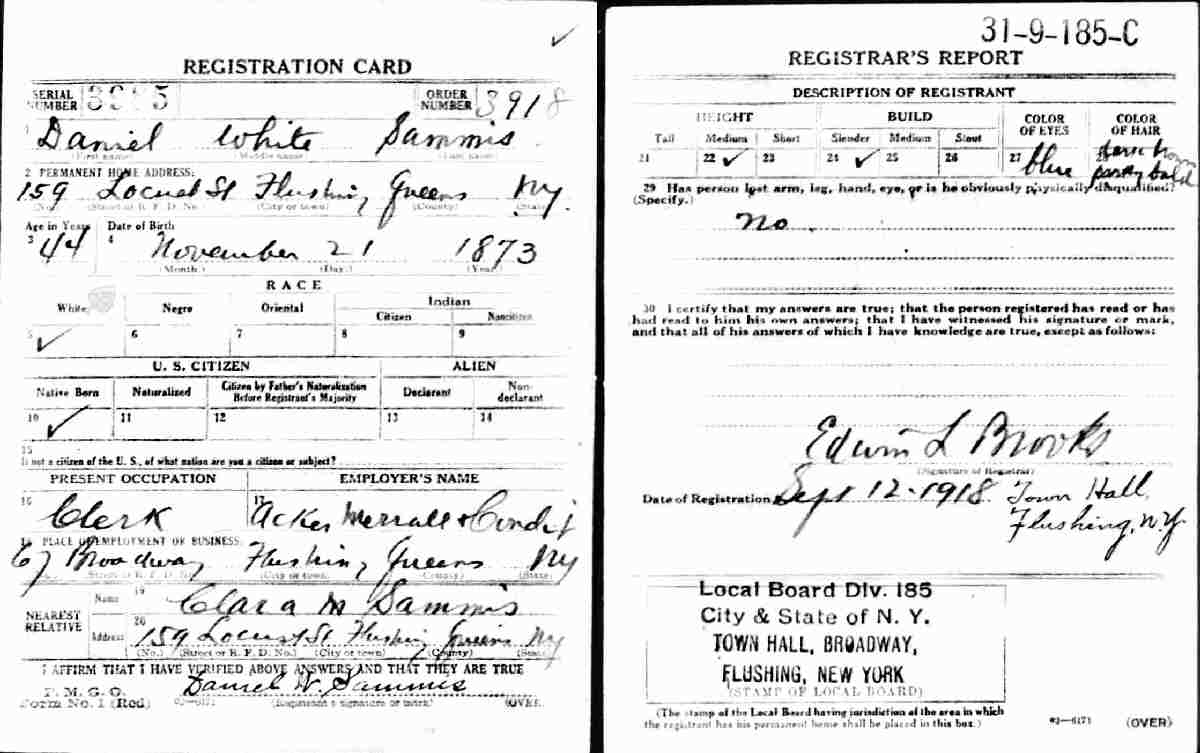 REGISTRATION CARD
SERIAL NUMBER
ORDER NUMBER 3918
1 Daniel White Sammis
(First name) (Middle name) (Last name)
2 PERMANENT HOME ADDRESS:
159 Locust St Flushing Queens NY.
(No.) (Street or R. F. D. No.) (City or town) (County) (State)
Age in Years Date of Birth
3 44 4 November 21 1873
(Month.) (Day.) (Year.)
RACE
White Negro Oriental Indian
Citizen Noncitizen
5 ✓ 6 7 8 9
U. S. CITIZEN ALIEN
Native Born Naturalized Citizen by Father's Naturalization Before Registrant's Majority Declarant Non-declarant
10 ✓ 11 12 13 14
15
Is not a citizen of the U. S., of what nation are you a citizen or subject?
PRESENT OCCUPATION EMPLOYER'S NAME
16 Clerk 17 Acker Merrall & Condit
18 PLACE OF EMPLOYMENT OR BUSINESS:
67 Broadway Flushing Queens NY
(No.) (Street or R. F. D. No.) (City or town) (County) (State)
NEAREST RELATIVE
Name 19 Clara M Sammis
Address 20 159 Locust St Flushing Queens NY
(No.) (Street or R. F. D. No.) (City or town) (County) (State)
I AFFIRM THAT I HAVE VERIFIED ABOVE ANSWERS AND THAT THEY ARE TRUE
P. M. G. O.
Form No. 1 (Red)
Daniel W. Sammis
(Registrant's signature or mark) (OVER)
31-9-185-C
REGISTRAR'S REPORT
DESCRIPTION OF REGISTRANT
HEIGHT BUILD COLOR OF EYES COLOR OF HAIR
Tall Medium Short Slender Medium Stout
21 22 ✓ 23 24 ✓ 25 26 27 blue 28 dark brown partly bald
29 Has person lost arm, leg, hand, eye, or is he obviously physically disqualified?
(Specify.)
No.
30 I certify that my answers are true; that the person registered has read or has
had read to him his own answers; that I have witnessed his signature or mark,
and that all of his answers of which I have knowledge are true, except as follows:
Edwin L Brooks
(Signature of Registrar)
Date of Registration Sept 12-1918. Town Hall,
Flushing, N.Y.
Local Board Div. 185
City & State of N. Y.
TOWN HALL, BROADWAY,
FLUSHING, NEW YORK
(STAMP OF LOCAL BOARD)
(The stamp of the Local Board having jurisdiction of the area in which
the registrant has his permanent home shall be placed in this box.)
(OVER)